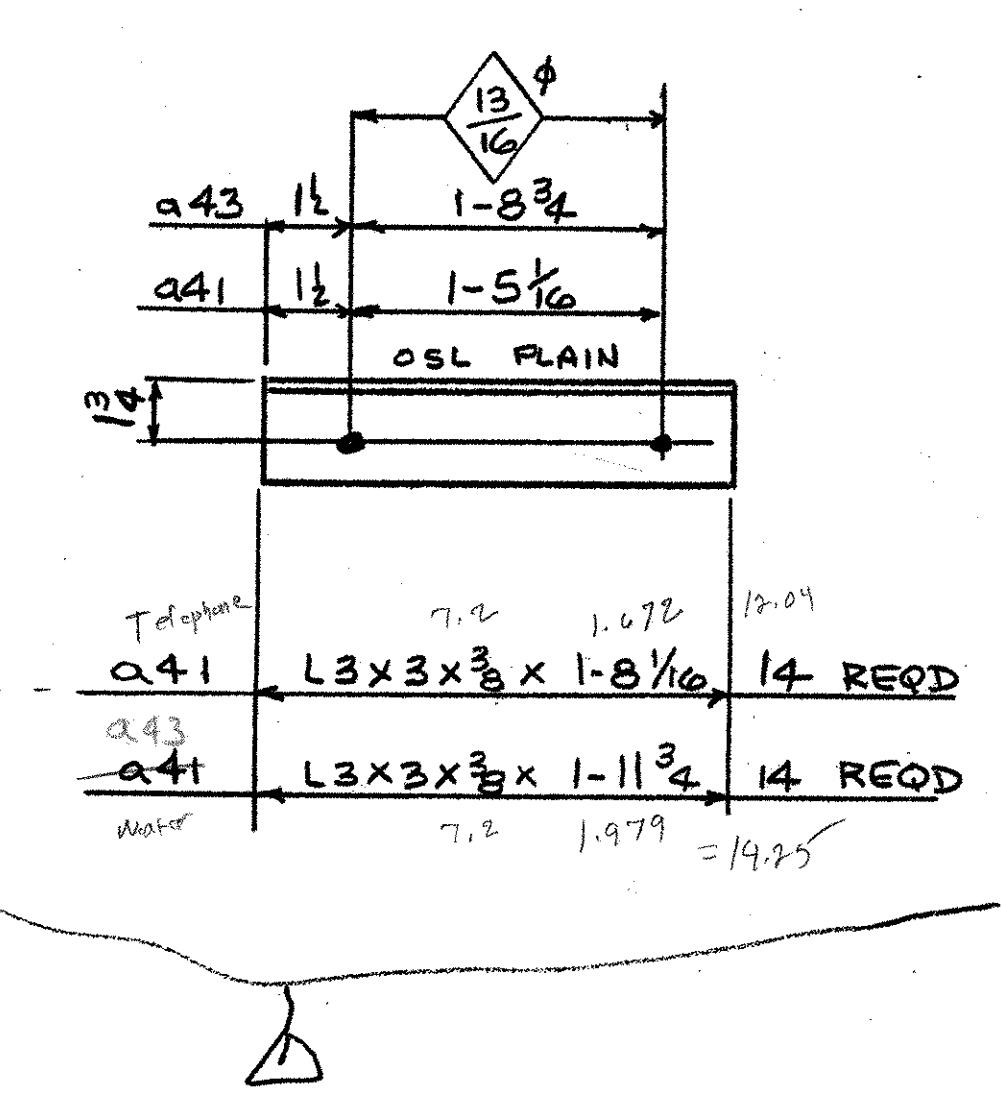 13/16 ϕ
a43 1 1/2 1-8 3/4
a41 1 1/2 1-5 1/16
OSL PLAIN
1 3/4
Telephone 7.2 1.672 12.04
a41 L3 x 3 x 3/8 x 1-8 1/16 14 REQD
a43
a41 L3 x 3 x 3/8 x 1-11 3/4 14 REQD
Water 7.2 1.979 = 14.25